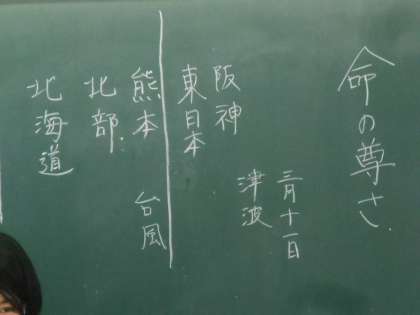 命の尊さ
三月十一日
津波
阪神
東日本
熊本 台風
北部
北海道